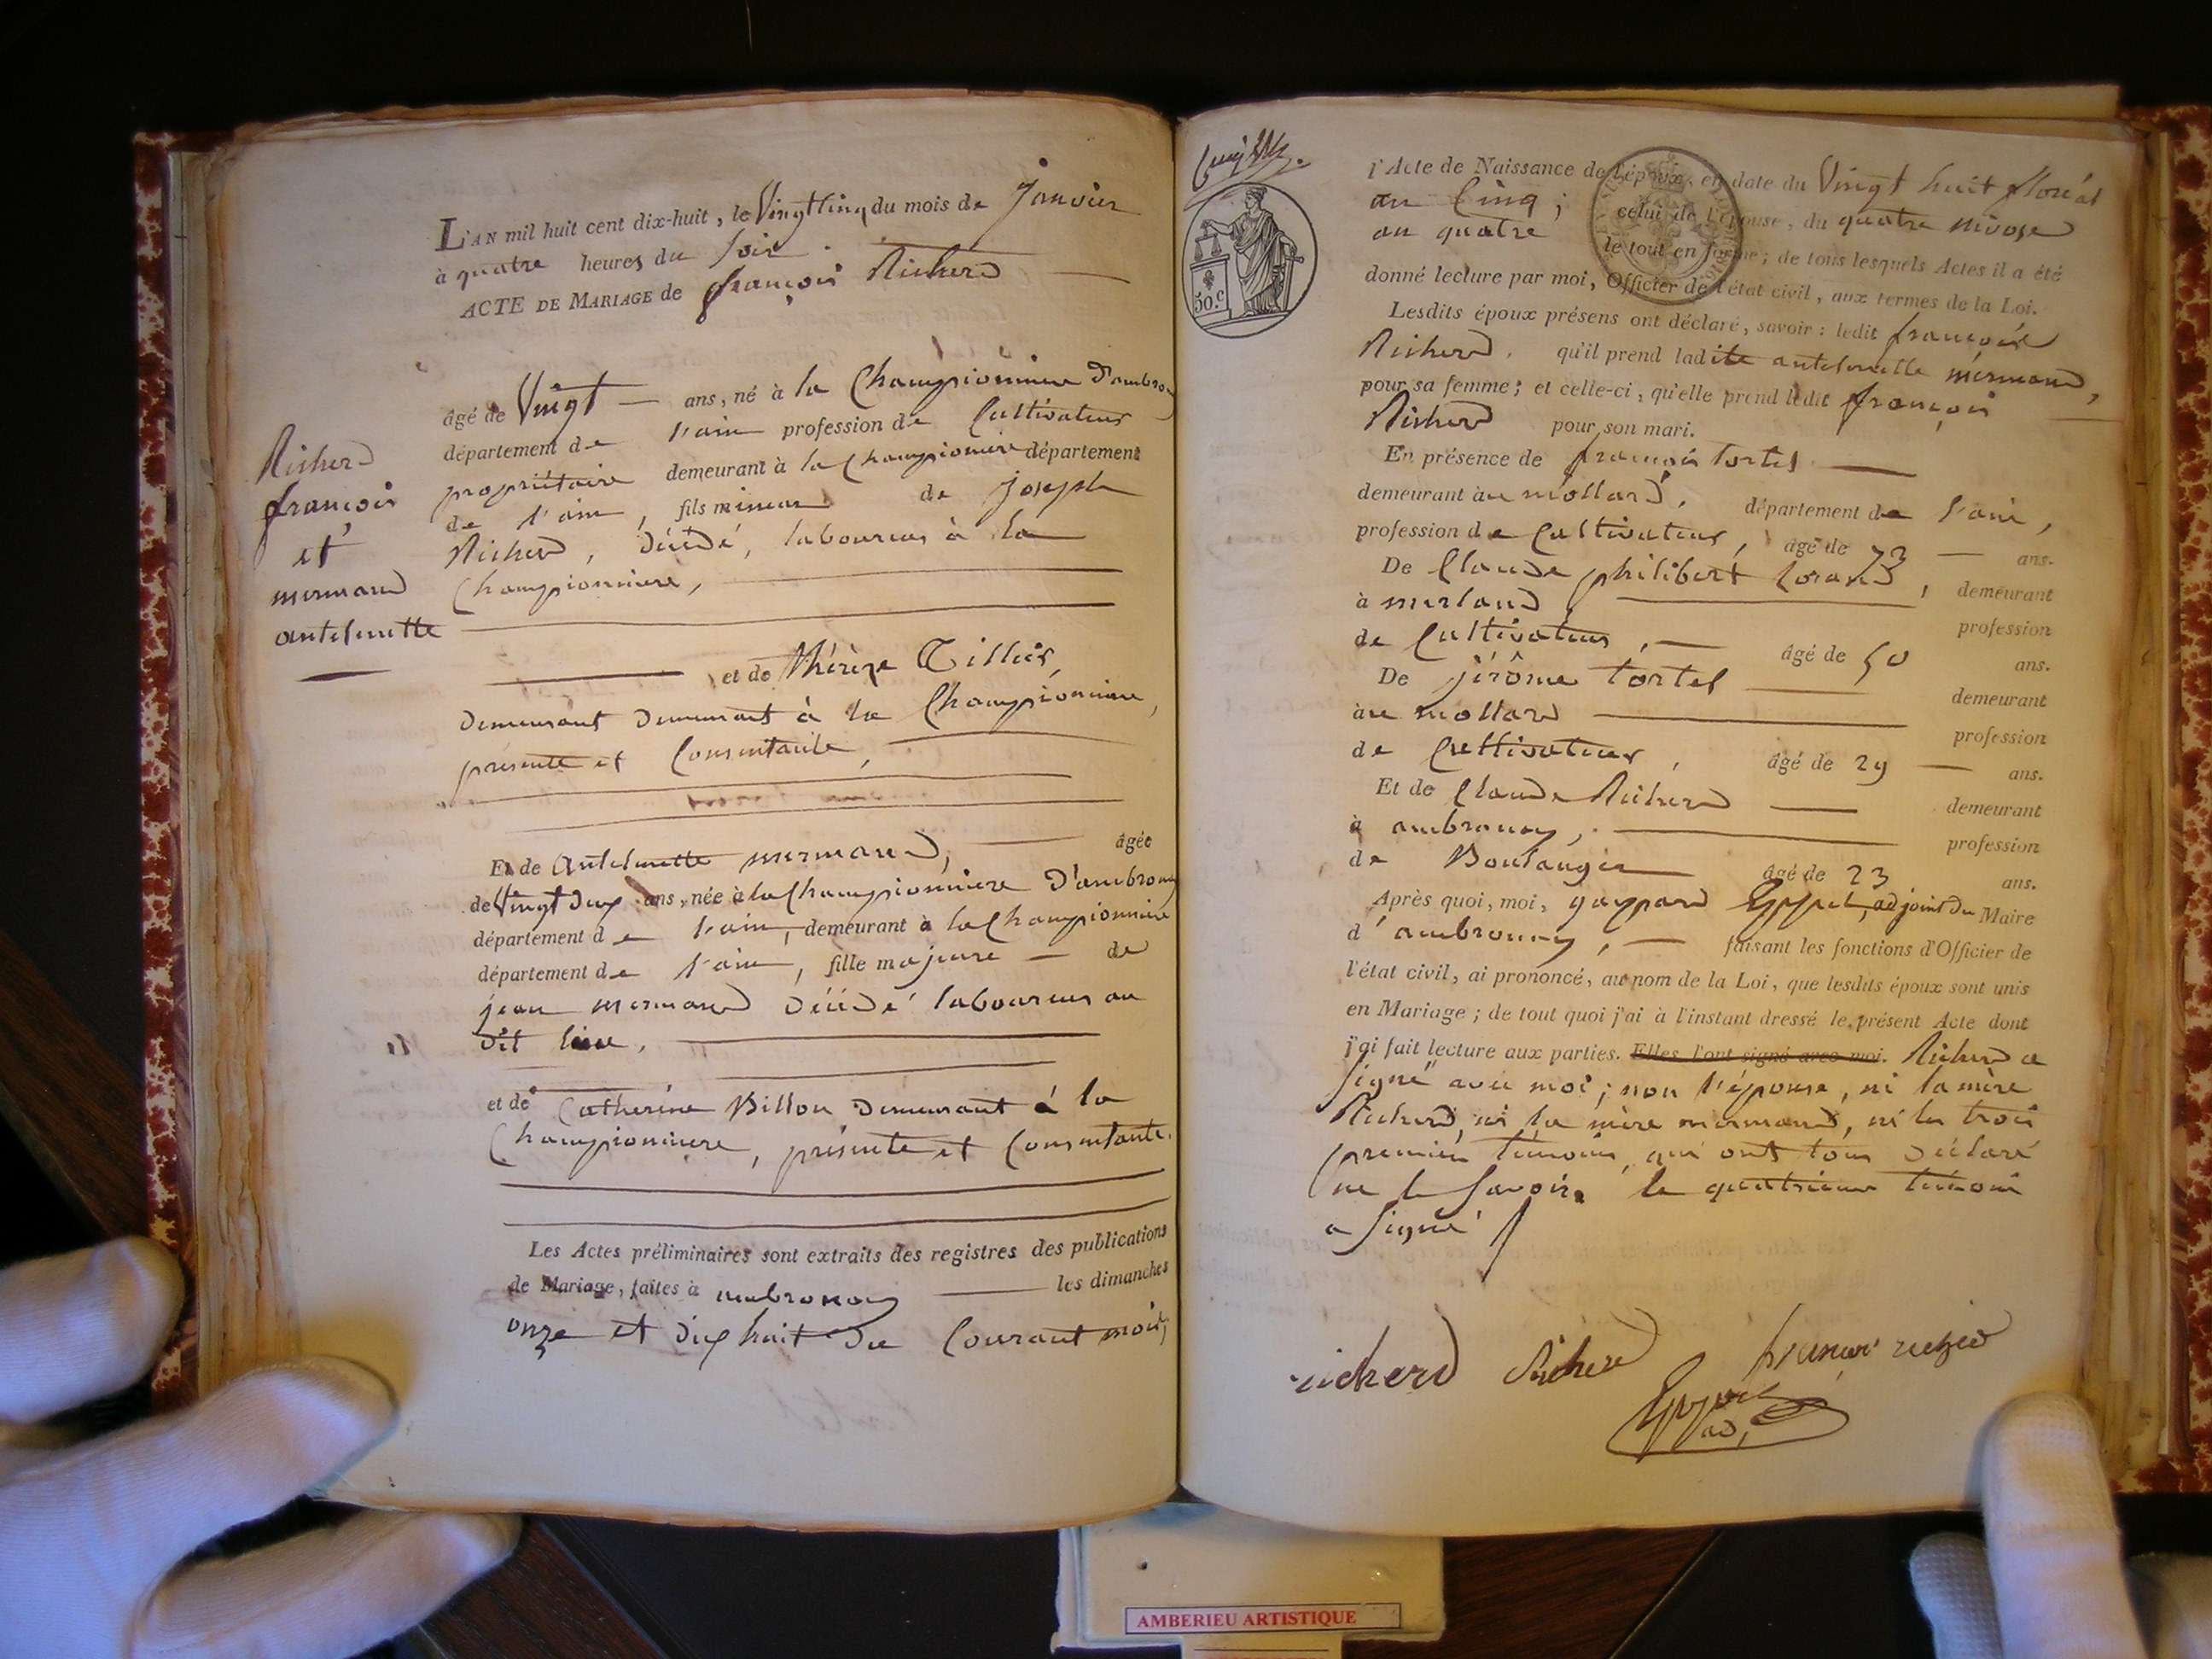 L'AN mil huit cent dix-huit, le Vingt Cinq du mois de Janvier
à quatre heures du soir
ACTE DE MARIAGE de françois Richerd
âgé de Vingt ans, né à la Championniere d'ambronay
département de l'ain profession de Cultivateur
propriétaire demeurant à la Championiere département
de l'ain, fils mineur de joseph
Richerd, décédé, laboureur à la
Championniere,
Richerd
françois
et
mermand
anthelmette
et de Thérèze Tillier,
demeurant demeurant à la Championniere,
présente et Consentante,
Et de anthelmette mermand, âgée
de Vingt deux ans, née à la Championniere d'ambronay
département de l'ain, demeurant à la Championniere
département de l'ain, fille majeure de
jean mermand décédé laboureur au
dit lieu,
et de Catherine Billon demeurant à la
Championniere, présente et Consentante.
Les Actes préliminaires sont extraits des registres des publications
de Mariage, faites à ambronay les dimanches
onze et dix huit du Courant mois,
l'Acte de Naissance de l'époux, en date du Vingt huit floréal
an Cinq; celui de l'épouse, du quatre nivose
an quatre le tout en forme; de tous lesquels Actes il a été
donné lecture par moi, Officier de l'état civil, aux termes de la Loi.
50.c
Lesdits époux présens ont déclaré, savoir: ledit françois
Richerd. qu'il prend ladite anthelmette mermand,
pour sa femme; et celle-ci, qu'elle prend ledit françois
Richerd pour son mari.
En présence de françois Tortel
demeurant au mollard, département de l'ain,
profession de Cultivateur, âgé de 73 ans.
De Claude philibert , demeurant
à merland profession
de Cultivateur, âgé de 50 ans.
De jérôme Tortel demeurant
au mollard profession
de Cultivateur, âgé de 29 ans.
Et de Claude Richerd demeurant
à ambronay, profession
de Boulanger âgé de 23 ans.
Après quoi, moi, gaspard , adjoint du Maire
d'ambronay, faisant les fonctions d'Officier de
l'état civil, ai prononcé, au nom de la Loi, que lesdits époux sont unis
en Mariage; de tout quoi j'ai à l'instant dressé le présent Acte dont
j'ai fait lecture aux parties. Elles l'ont signé avec moi. Richerd a
signé avec moi; non l'épouse, ni la mère
Richerd, ni la mère mermand, ni les trois
premiers témoins, qui ont tous déclaré
ne le savoir. le quatrieme témoin
a signé
richerd Richerd
ad,
AMBERIEU ARTISTIQUE